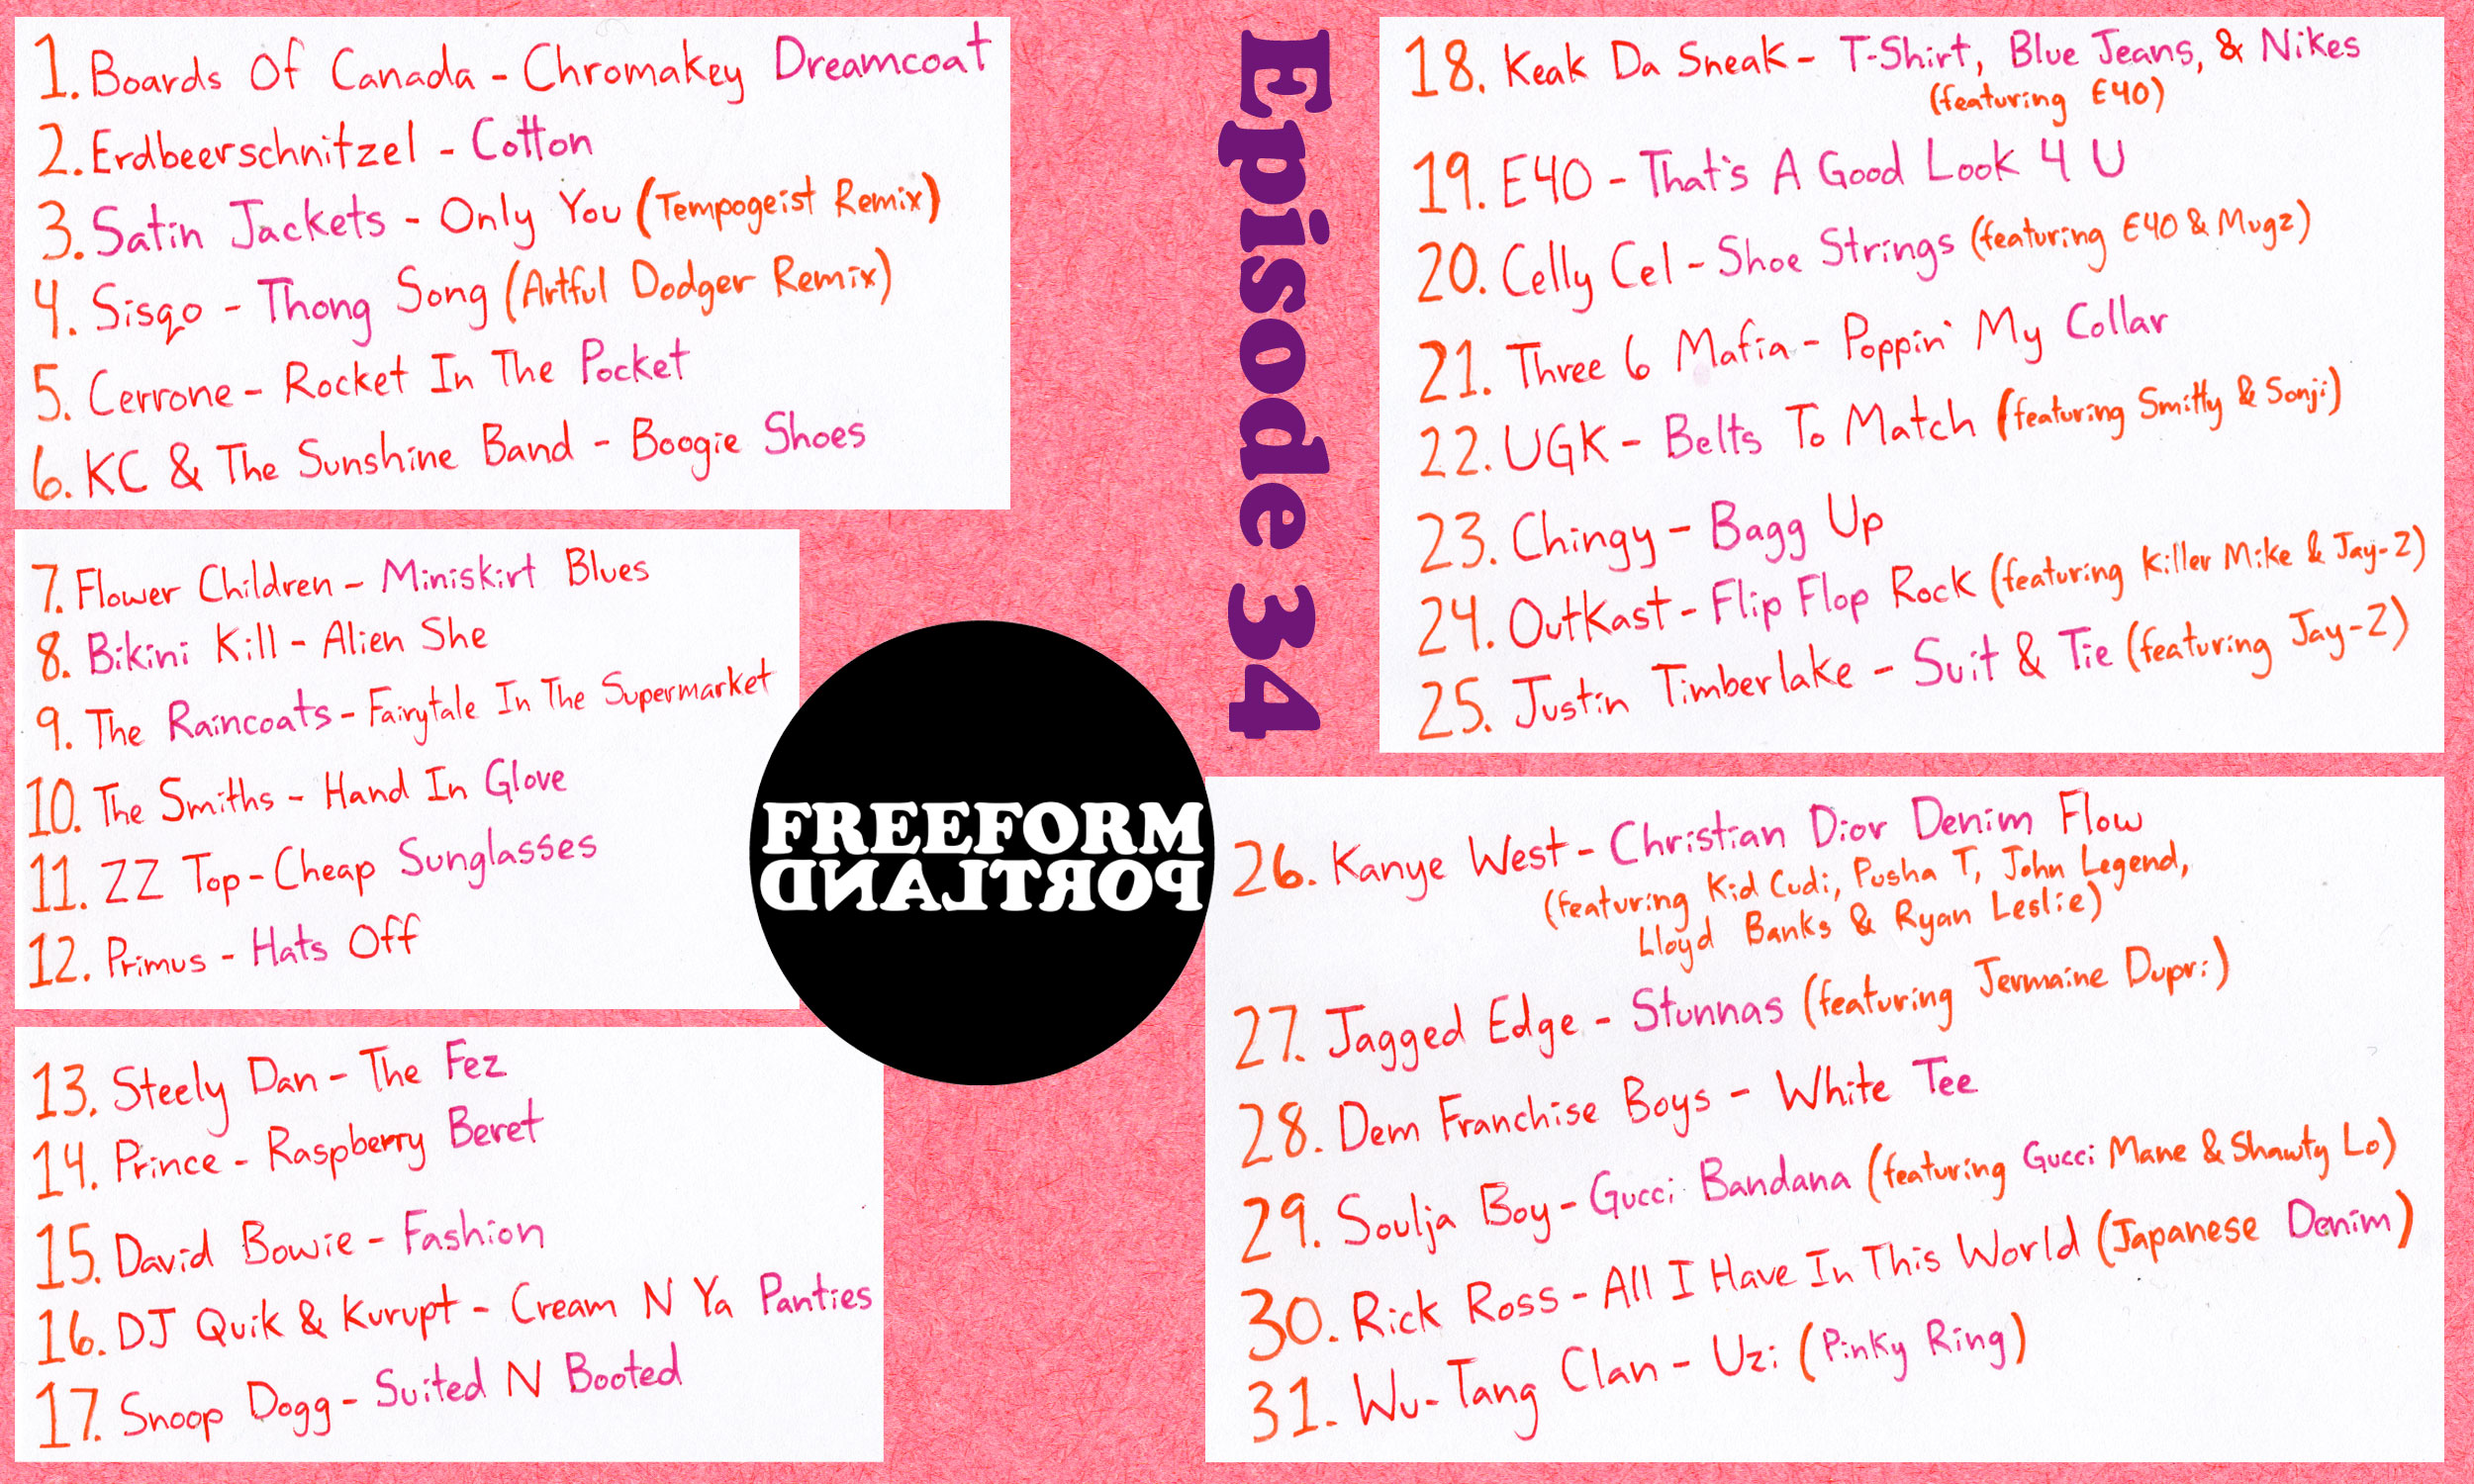 1. Boards Of Canada - Chromakey Dreamcoat
2. Erdbeerschnitzel - Cotton
3. Satin Jackets - Only You (Tempogeist Remix)
4. Sisqo - Thong Song (Artful Dodger Remix)
5. Cerrone - Rocket In The Pocket
6. KC & The Sunshine Band - Boogie Shoes
7. Flower Children - Miniskirt Blues
8. Bikini Kill - Alien She
9. The Raincoats - Fairytale In The Supermarket
10. The Smiths - Hand In Glove
11. ZZ Top - Cheap Sunglasses
12. Primus - Hats Off
13. Steely Dan - The Fez
14. Prince - Raspberry Beret
15. David Bowie - Fashion
16. DJ Quik & Kurupt - Cream N Ya Panties
17. Snoop Dogg - Suited N Booted
FREEFORM
PORTLAND
Episode 34
18. Keak Da Sneak - T-Shirt, Blue Jeans, & Nikes
(featuring E40)
19. E40 - That's A Good Look 4 U
20. Celly Cel - Shoe Strings (featuring E40 & Mugz)
21. Three 6 Mafia - Poppin' My Collar
22. UGK - Belts To Match (featuring Smitty & Sonji)
23. Chingy - Bagg Up
24. OutKast - Flip Flop Rock (featuring Killer Mike & Jay-Z)
25. Justin Timberlake - Suit & Tie (featuring Jay-Z)
26. Kanye West - Christian Dior Denim Flow
(featuring Kid Cudi, Pusha T, John Legend,
Lloyd Banks & Ryan Leslie)
27. Jagged Edge - Stunnas (featuring Jermaine Dupri)
28. Dem Franchise Boys - White Tee
29. Soulja Boy - Gucci Bandana (featuring Gucci Mane & Shawty Lo)
30. Rick Ross - All I Have In This World (Japanese Denim)
31. Wu-Tang Clan - Uzi (Pinky Ring)